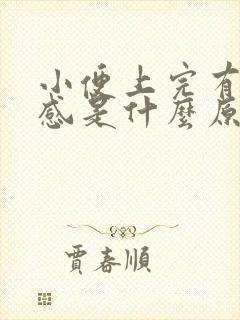 小便上完有
感是什麼原
賈春順